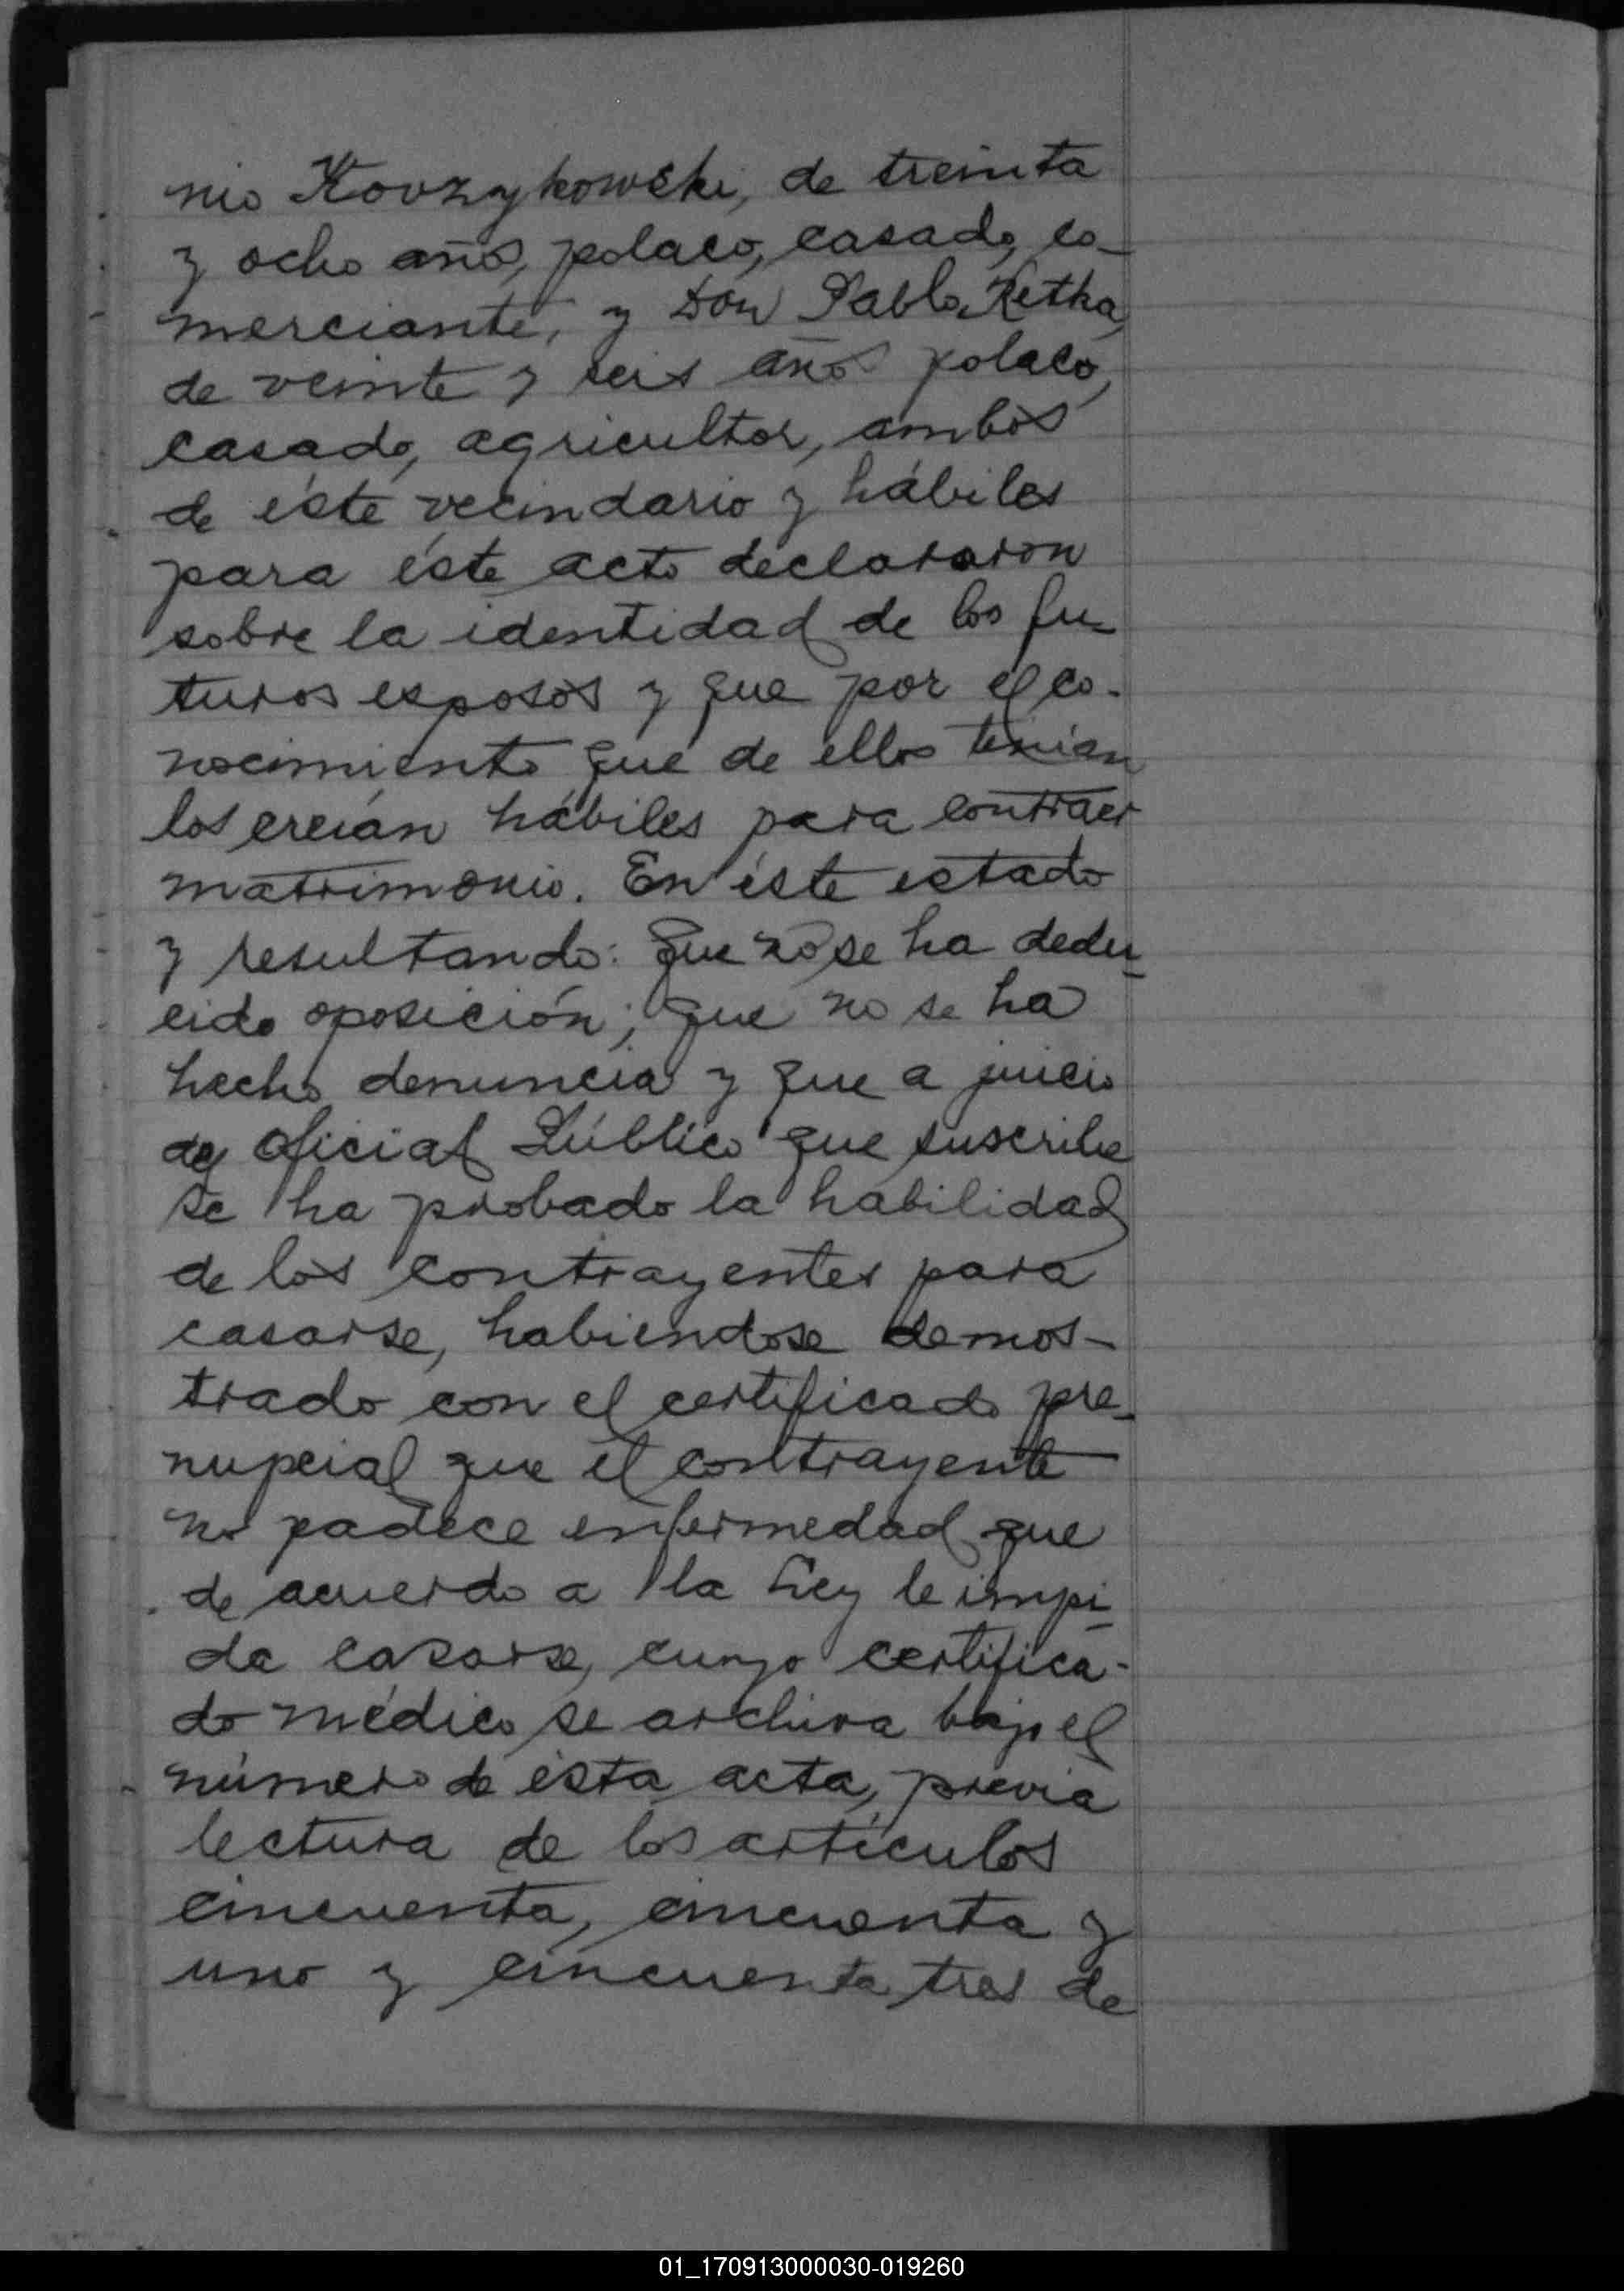 nio Kovzykowski, de treinta
y ocho años, polaco, casado, co-
merciante, y Don Pablo Retka,
de veinte y seis años polaco,
casado, agricultor, ambos
de éste vecindario y hábiles
para éste acto declararon
sobre la identidad de los fu-
turos esposos y que por el co-
nocimiento que de ellos tenían
los creían hábiles para contraer
matrimonio. En éste estado
y resultando: que no se ha dedu-
cido oposición; que no se ha
hecho denuncia y que a juicio
del oficial Público que suscribe
se ha probado la habilidad
de los contrayentes para
casarse, habiendose demos-
trado con el certificado pre-
nupcial que el contrayente
no padece enfermedad que
de acuerdo a la Ley le impi-
da casarse, cuyo certifica-
do médico se archiva bajo el
número de ésta acta, previa
lectura de los artículos
cincuenta, cincuenta y
uno y cincuenta tres de
01_170913000030-019260